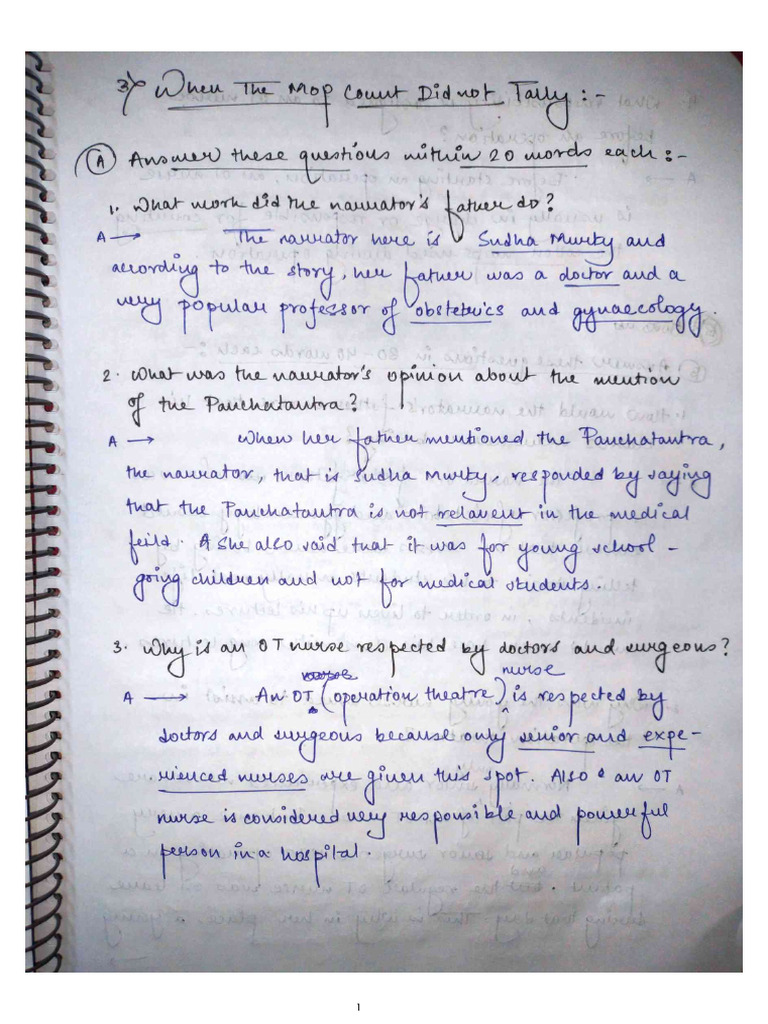 3) When The Mop Count Did not Tally :-
(A) Answer these questions within 20 words each :-
1. What work did the narrator's father do?
A → The narrator here is Sudha Murty and
according to the story, her father was a doctor and a
very popular professor of obstetrics and gynaecology.
2. What was the narrator's opinion about the mention
of the Panchatantra?
A → When her father mentioned the Panchatantra,
the narrator, that is Sudha Murty, responded by saying
that the Panchatantra is not relavent in the medical
feild. She also said that it was for young school-
going children and not for medical students.
3. Why is an OT nurse respected by doctors and surgeons?
nurse
A → An OT (operation theatre) is respected by
doctors and surgeons because only senior and expe-
rienced nurses are given this spot. Also an OT
nurse is considered very responsible and powerful
person in a hospital.
1